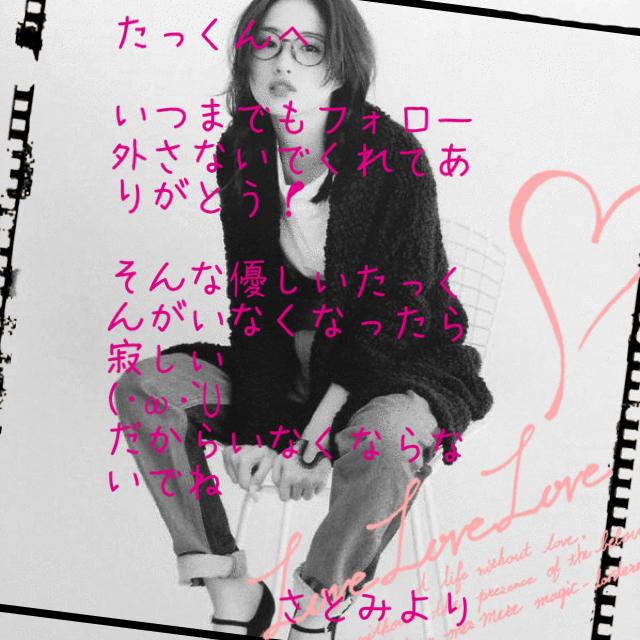 たっくんへ
いつまでもフォロー
外さないでくれてあ
りがとう!
そんな優しいたっく
んがいなくなったら
寂しい
(´·ω·`)
だからいなくならな
いでね
Love Love Love
life without love,
さとみより